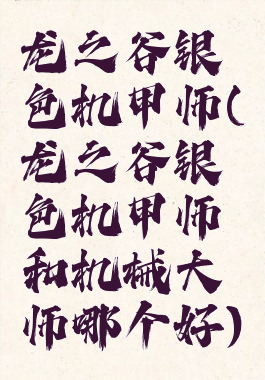 龙之谷银
色机甲师(
龙之谷银
色机甲师
和机械大
师哪个好)